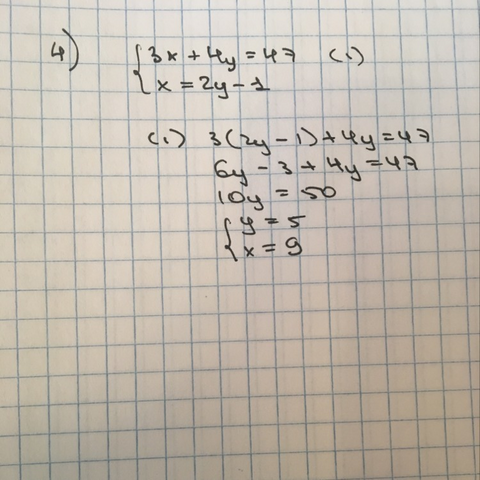 4) { 3x + 4y = 47 (1)
{ x = 2y - 1
(1) 3(2y - 1) + 4y = 47
6y - 3 + 4y = 47
10y = 50
{ y = 5
{ x = 9